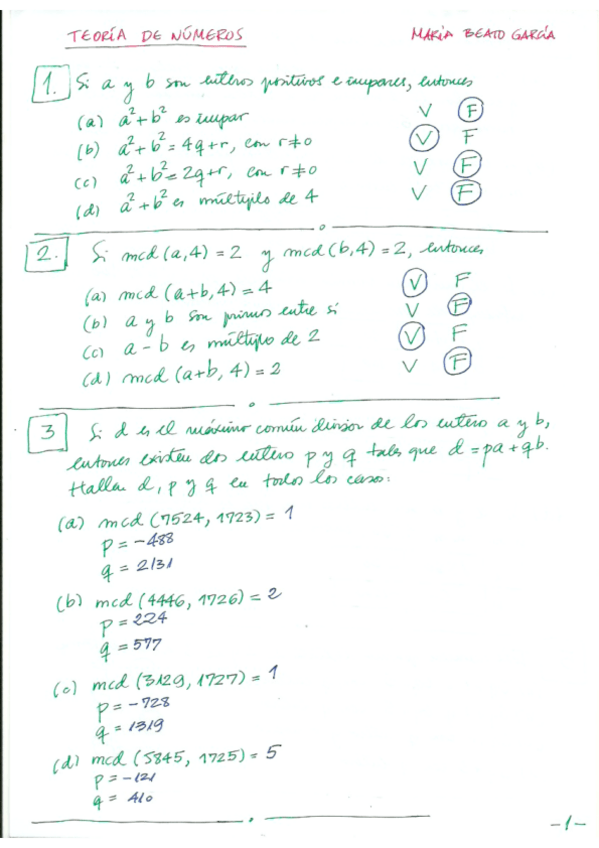 TEORÍA DE NÚMEROS MARÍA BEATO GARCÍA
1. Si a y b son enteros positivos e impares, entonces
(a) a²+b² es impar V F
(b) a²+b² = 4q+r, con r≠0 V F
(c) a²+b² = 2q+r, con r≠0 V F
(d) a²+b² es múltiplo de 4 V F
2. Si mcd (a,4) = 2 y mcd (b,4) = 2, entonces
(a) mcd (a+b, 4) = 4 V F
(b) a y b son primos entre sí V F
(c) a - b es múltiplo de 2 V F
(d) mcd (a+b, 4) = 2 V F
3 Si d es el máximo común divisor de los entero a y b,
entonces existen dos entero p y q tales que d = pa + qb.
Hallar d, p y q en todos los casos:
(a) mcd (7524, 1723) = 1
p = -488
q = 2131
(b) mcd (4446, 1726) = 2
p = 224
q = 577
(c) mcd (3129, 1727) = 1
p = -728
q = 1319
(d) mcd (5845, 1725) = 5
p = -121
q = 410
-1-